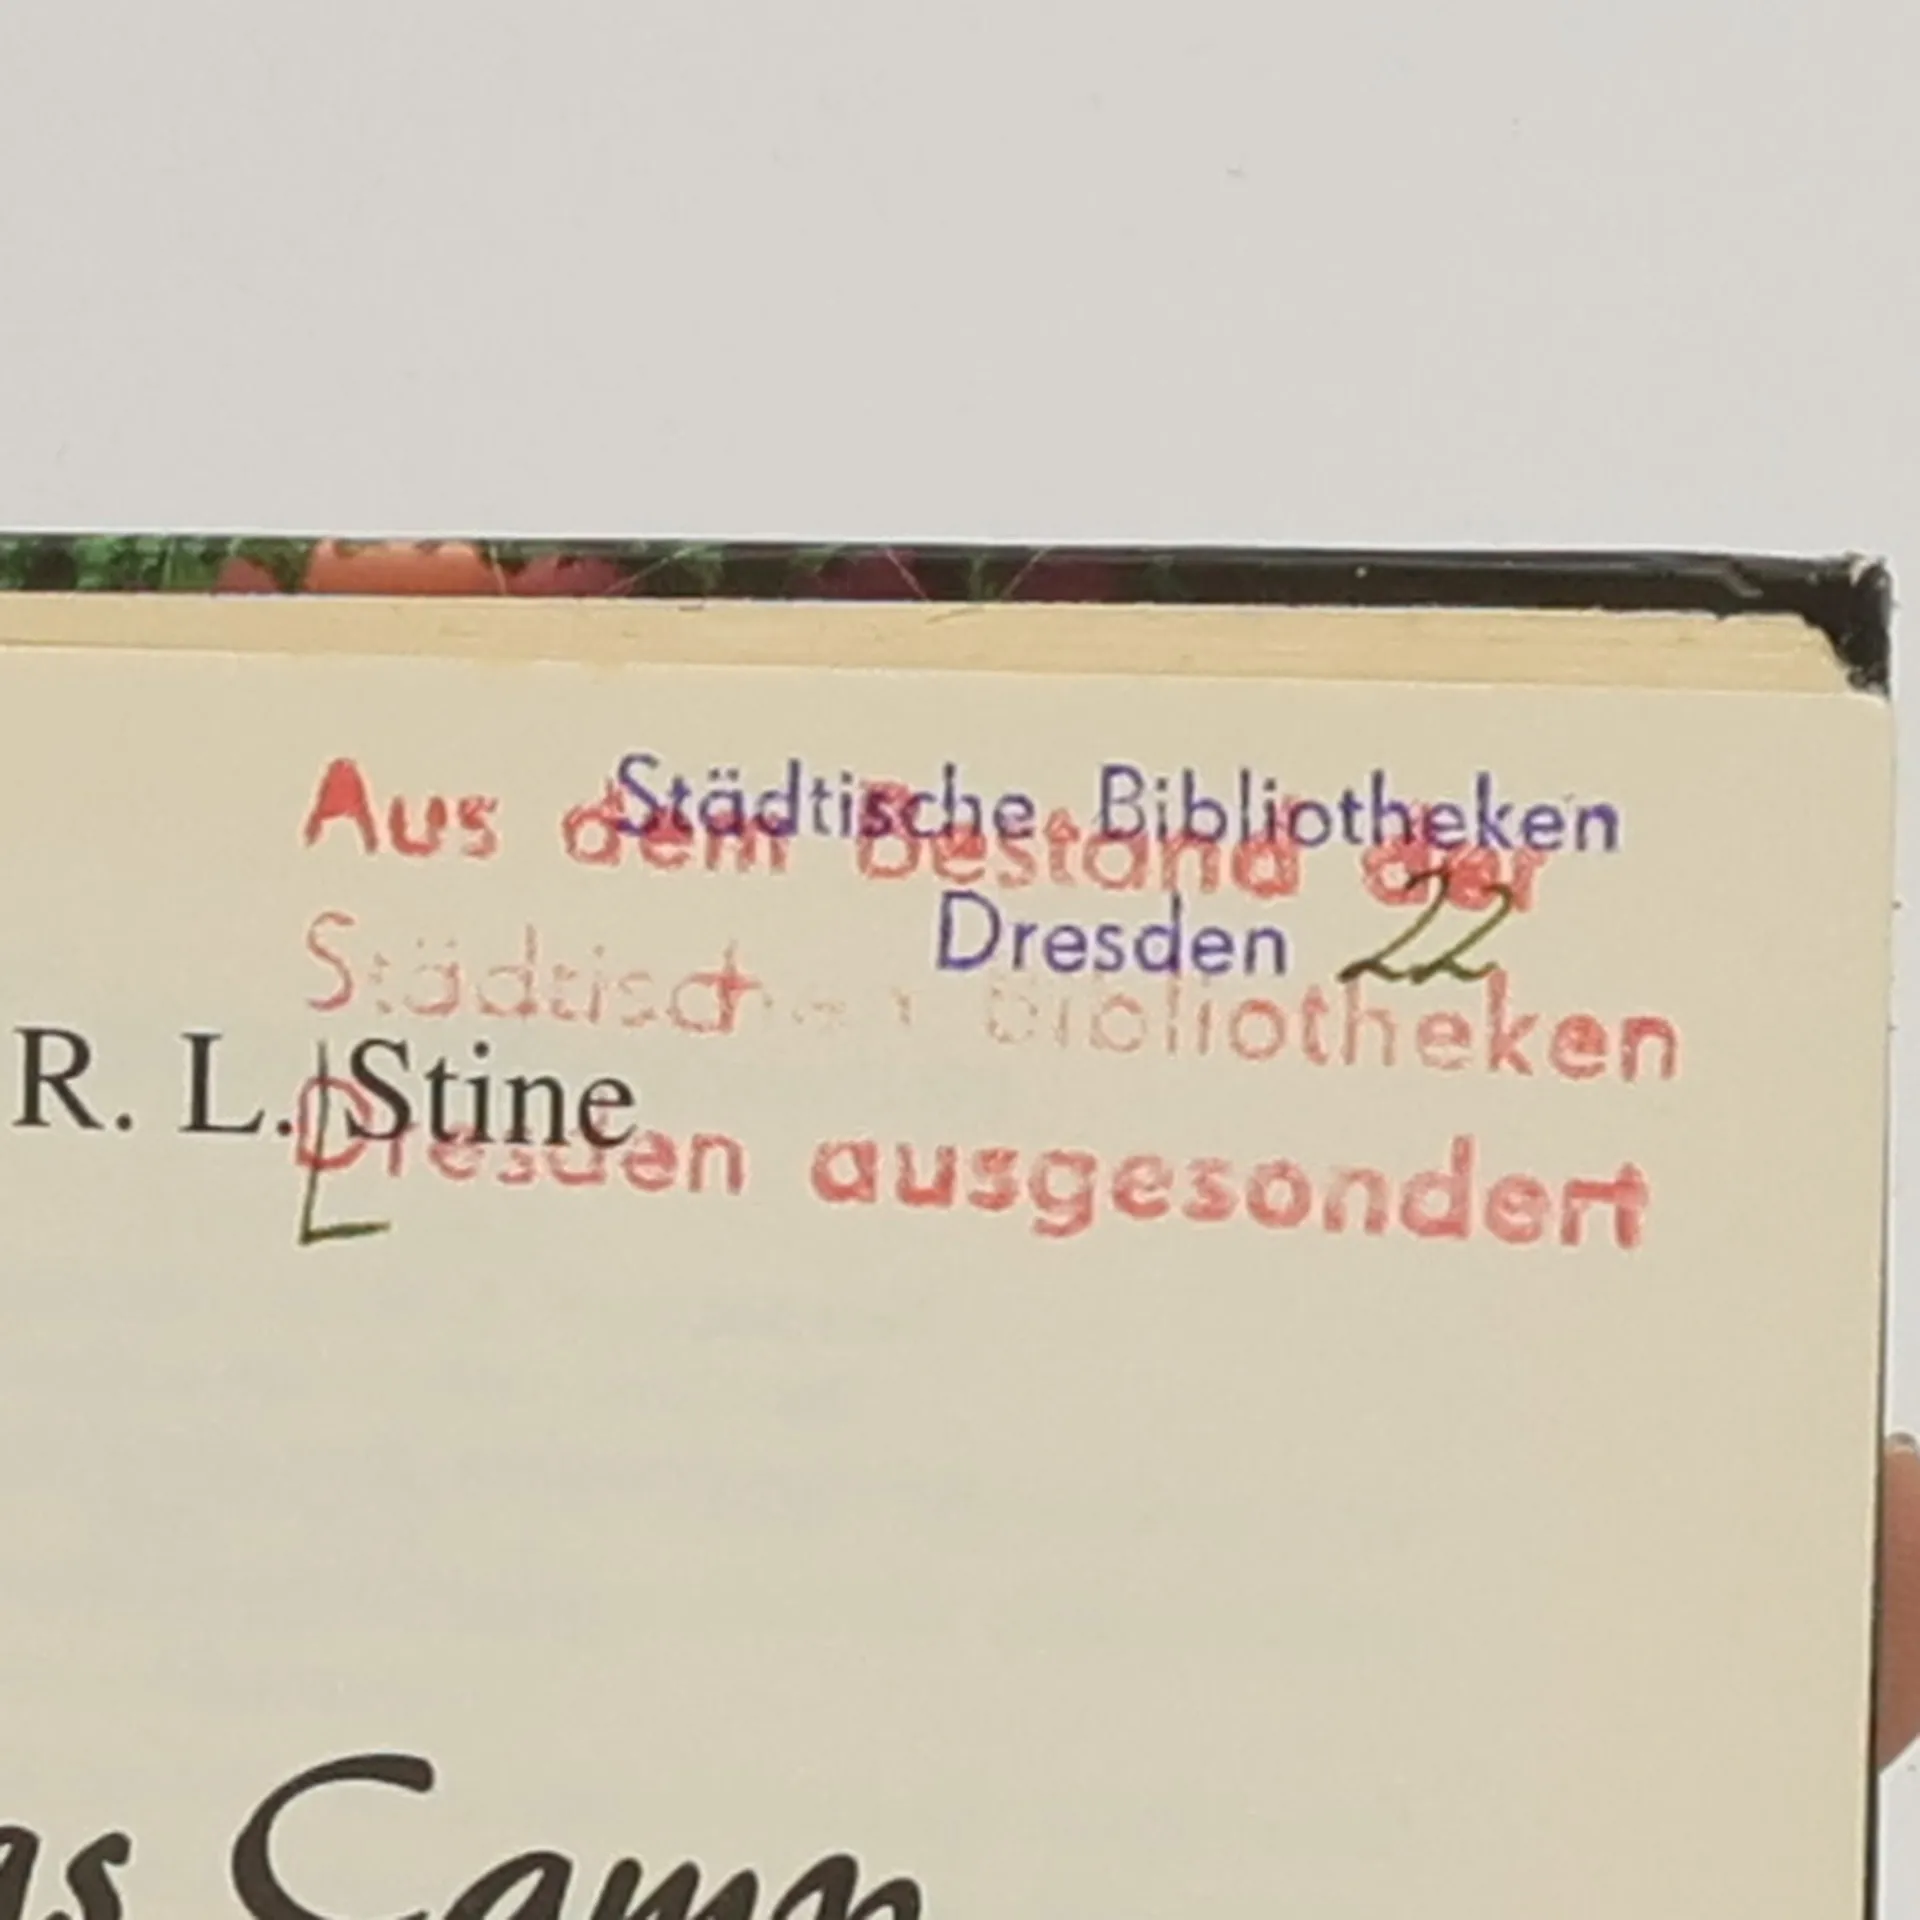 Städtische Bibliotheken
Dresden 22
Aus dem Bestand der
Städtischen Bibliotheken
Dresden ausgesondert
R. L. Stine
as Camp